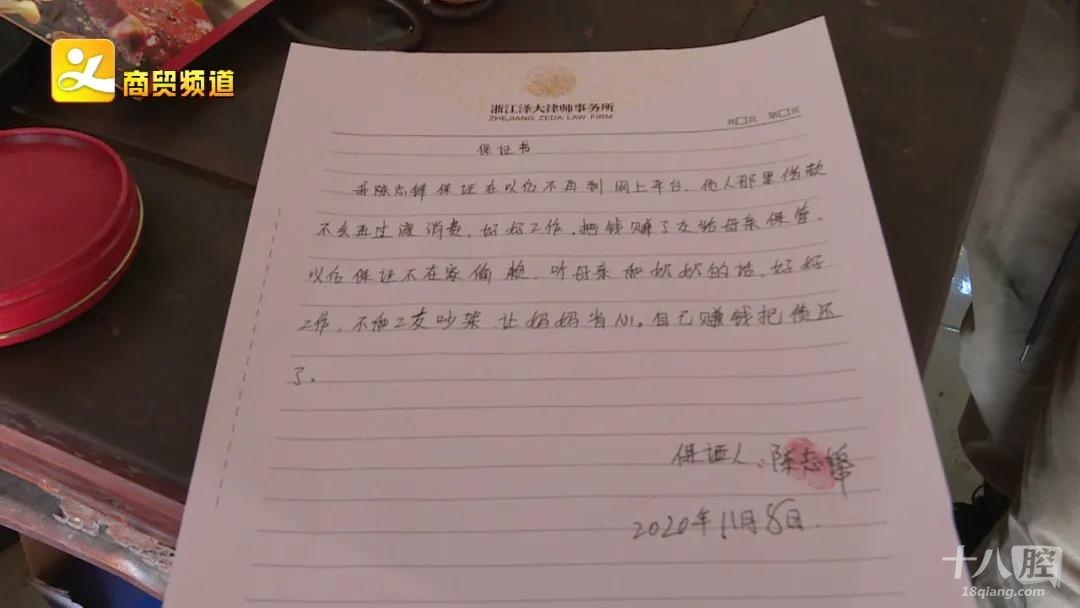 商贸频道
浙江泽大律师事务所
ZHEJIANG ZEDA LAW FIRM
共 页 第 页
保证书
我陈志锋保证在以后不再到网上平台、他人那里借款
不会再过渡消费,好好工作,把钱赚了交给母亲保管,
以后保证不在家偷懒,听母亲和奶奶的话,好好
工作,不和工友吵架 让妈妈省心。自己赚钱把债还
了。
保证人:陈志锋
2020年11月8日.
十八腔
18qiang.com